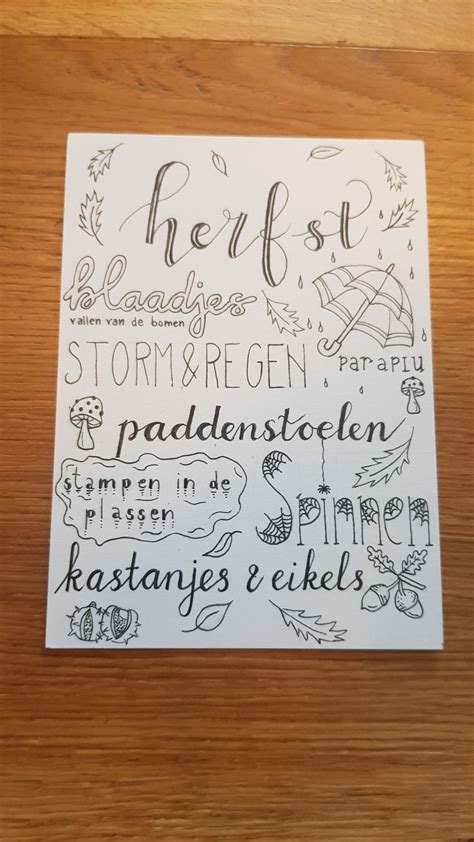 herfst
blaadjes
vallen van de bomen
STORM & REGEN
paraplu
paddenstoelen
stampen in de
plassen
Spinnen
kastanjes & eikels